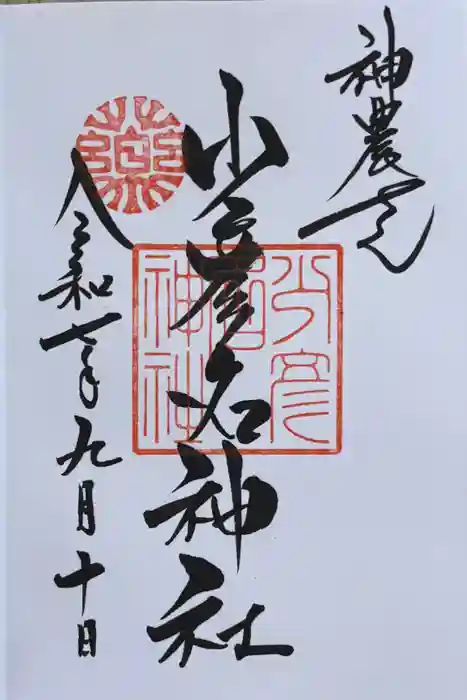 神農さん
少彦名神社
少彦名神社
令和七年九月十日